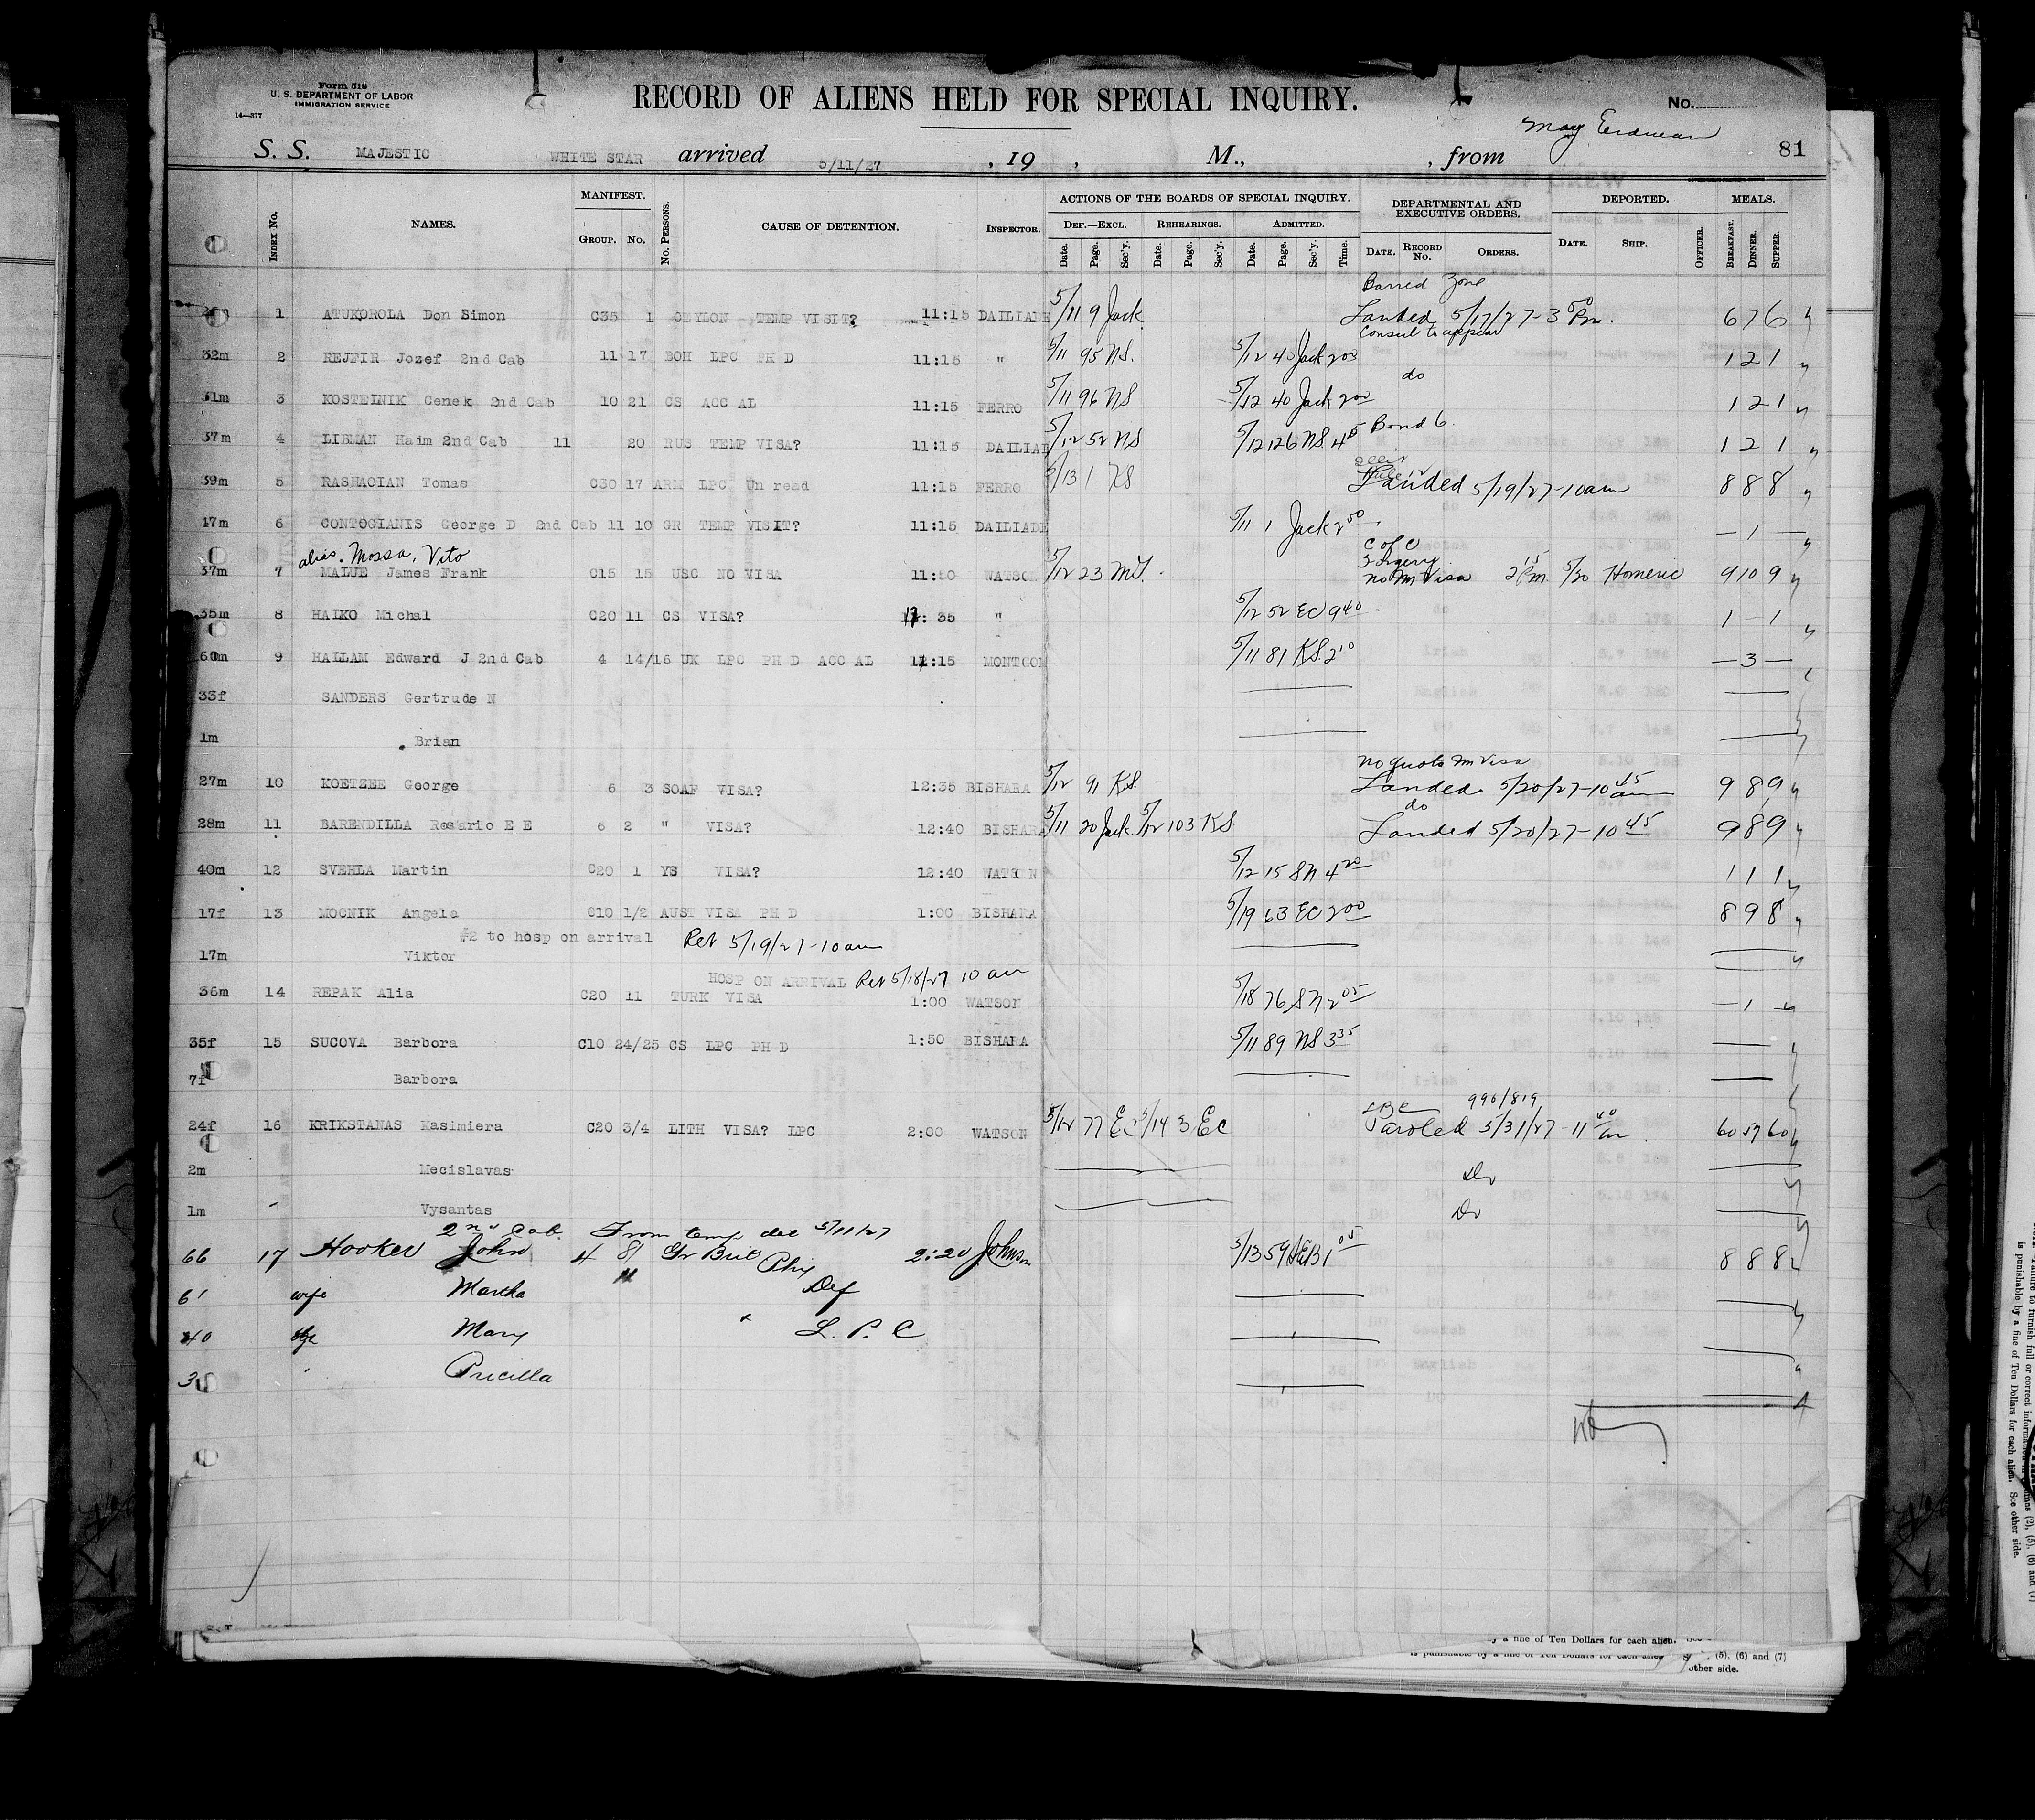 Form 519
U. S. DEPARTMENT OF LABOR
IMMIGRATION SERVICE
14—377
RECORD OF ALIENS HELD FOR SPECIAL INQUIRY.
No.
May Erdman
S. S. MAJESTIC WHITE STAR arrived 5/11/27 , 19 , M., , from
81
INDEX No. NAMES. MANIFEST. GROUP. No. No. PERSONS. CAUSE OF DETENTION. INSPECTOR. ACTIONS OF THE BOARDS OF SPECIAL INQUIRY. DEF.—EXCL. Date. Page. Sec'y. REHEARINGS. Date. Page. Sec'y. ADMITTED. Date. Page. Sec'y. Time. DEPARTMENTAL AND EXECUTIVE ORDERS. DATE. RECORD No. ORDERS. DEPORTED. DATE. SHIP. OFFICER. MEALS. BREAKFAST. DINNER. SUPPER.
Barred Zone
1 ATUKOROLA Don Simon C35 1 CEYLON TEMP VISIT? 11:15 DAILIADE 5/11 9 Jack Landed 5/17/27-3 50 Pm. 6 7 6
Consul to appear
32m 2 REJFIR Jozef 2nd Cab 11 17 BOH LPC PH D 11:15 " 5/11 95 NS. 5/12 40 Jack 2 00 1 2 1
do
31m 3 KOSTEINIK Cenek 2nd Cab 10 21 CS ACC AL 11:15 FERRO 5/11 96 NS 5/12 40 Jack 2 00 1 2 1
37m 4 LIBMAN Haim 2nd Cab 11 20 RUS TEMP VISA? 11:15 DAILIAD 5/12 52 NS 5/12 126 NS. 4 05 Bond 6 1 2 1
39m 5 RASHAOIAN Tomas C30 17 ARM LPC Un read 11:15 FERRO 5/13 1 KS Landed 5/19/27-10am 8 8 8
47m 6 CONTOGIANIS George D 2nd Cab 11 10 GR TEMP VISIT? 11:15 DAILIADE 5/11 1 Jack 2 50 — 1 —
alias. Mossa, Vito
C of C
37m 7 MALUE James Frank C15 15 USC NO VISA 11:50 WATSON 5/12 23 MT. no Im Visa 2 15 Pm 5/20 Homeric 9 10 9
35m 8 HAIKO Michal C20 11 CS VISA? 12:35 " 5/12 52 EC 9 40 1 — 1
60m 9 HALLAM Edward J 2nd Cab 4 14/16 UK LPC PH D ACC AL 11:15 MONTGOM 5/11 81 KS. 2 10 — 3 —
33f SANDERS Gertrude N
1m Brian
no quota Im Visa
27m 10 KOETZEE George 6 3 SOAF VISA? 12:35 BISHARA 5/12 91 KS. Landed 5/20/27-10 45 am 9 8 9
do
28m 11 BARENDILLA Rosario E E 6 2 " VISA? 12:40 BISHARA 5/11 20 Jack. 5/12 103 KS Landed 5/20/27-10 45 9 8 9
40m 12 SVEHLA Martin C20 1 YS VISA? 12:40 WATSON 5/12 15 SN 4 20 1 1 1
17f 13 MOCNIK Angela C10 1/2 AUST VISA PH D 1:00 BISHARA 5/19 63 EC 2 00 8 9 8
#2 to hosp on arrival Ret 5/19/27-10am
17m Viktor
HOSP ON ARRIVAL Ret 5/18/27 10 am
36m 14 REPAK Alia C20 11 TURK VISA 1:00 WATSON 5/18 76 SN 2 05 — 1 —
35f 15 SUCOVA Barbora C10 24/25 CS LPC PH D 1:50 BISHARA 5/11 89 NS 3 35
7f Barbora
990/819
24f 16 KRIKSTANAS Kasimiera C20 3/4 LITH VISA? LPC 2:00 WATSON 5/12 77 EC 5/14 3 EC Paroled 5/31/27-11 40 am 60 59 60
2m Mecislavas Do
1m Vysantas Do
2nd Cab. From temp det 5/11/27
66 17 Hooker John 4 81 Gr Brit Phy 2:20 Johnson 5/13 59 1 05 8 8 8
61 wife Martha Def
40 Mary L. P. C
Pricilla
y a fine of Ten Dollars for each alien.
is punishable by a fine of Ten Dollars for each alien (5), (6) and (7)
other side.